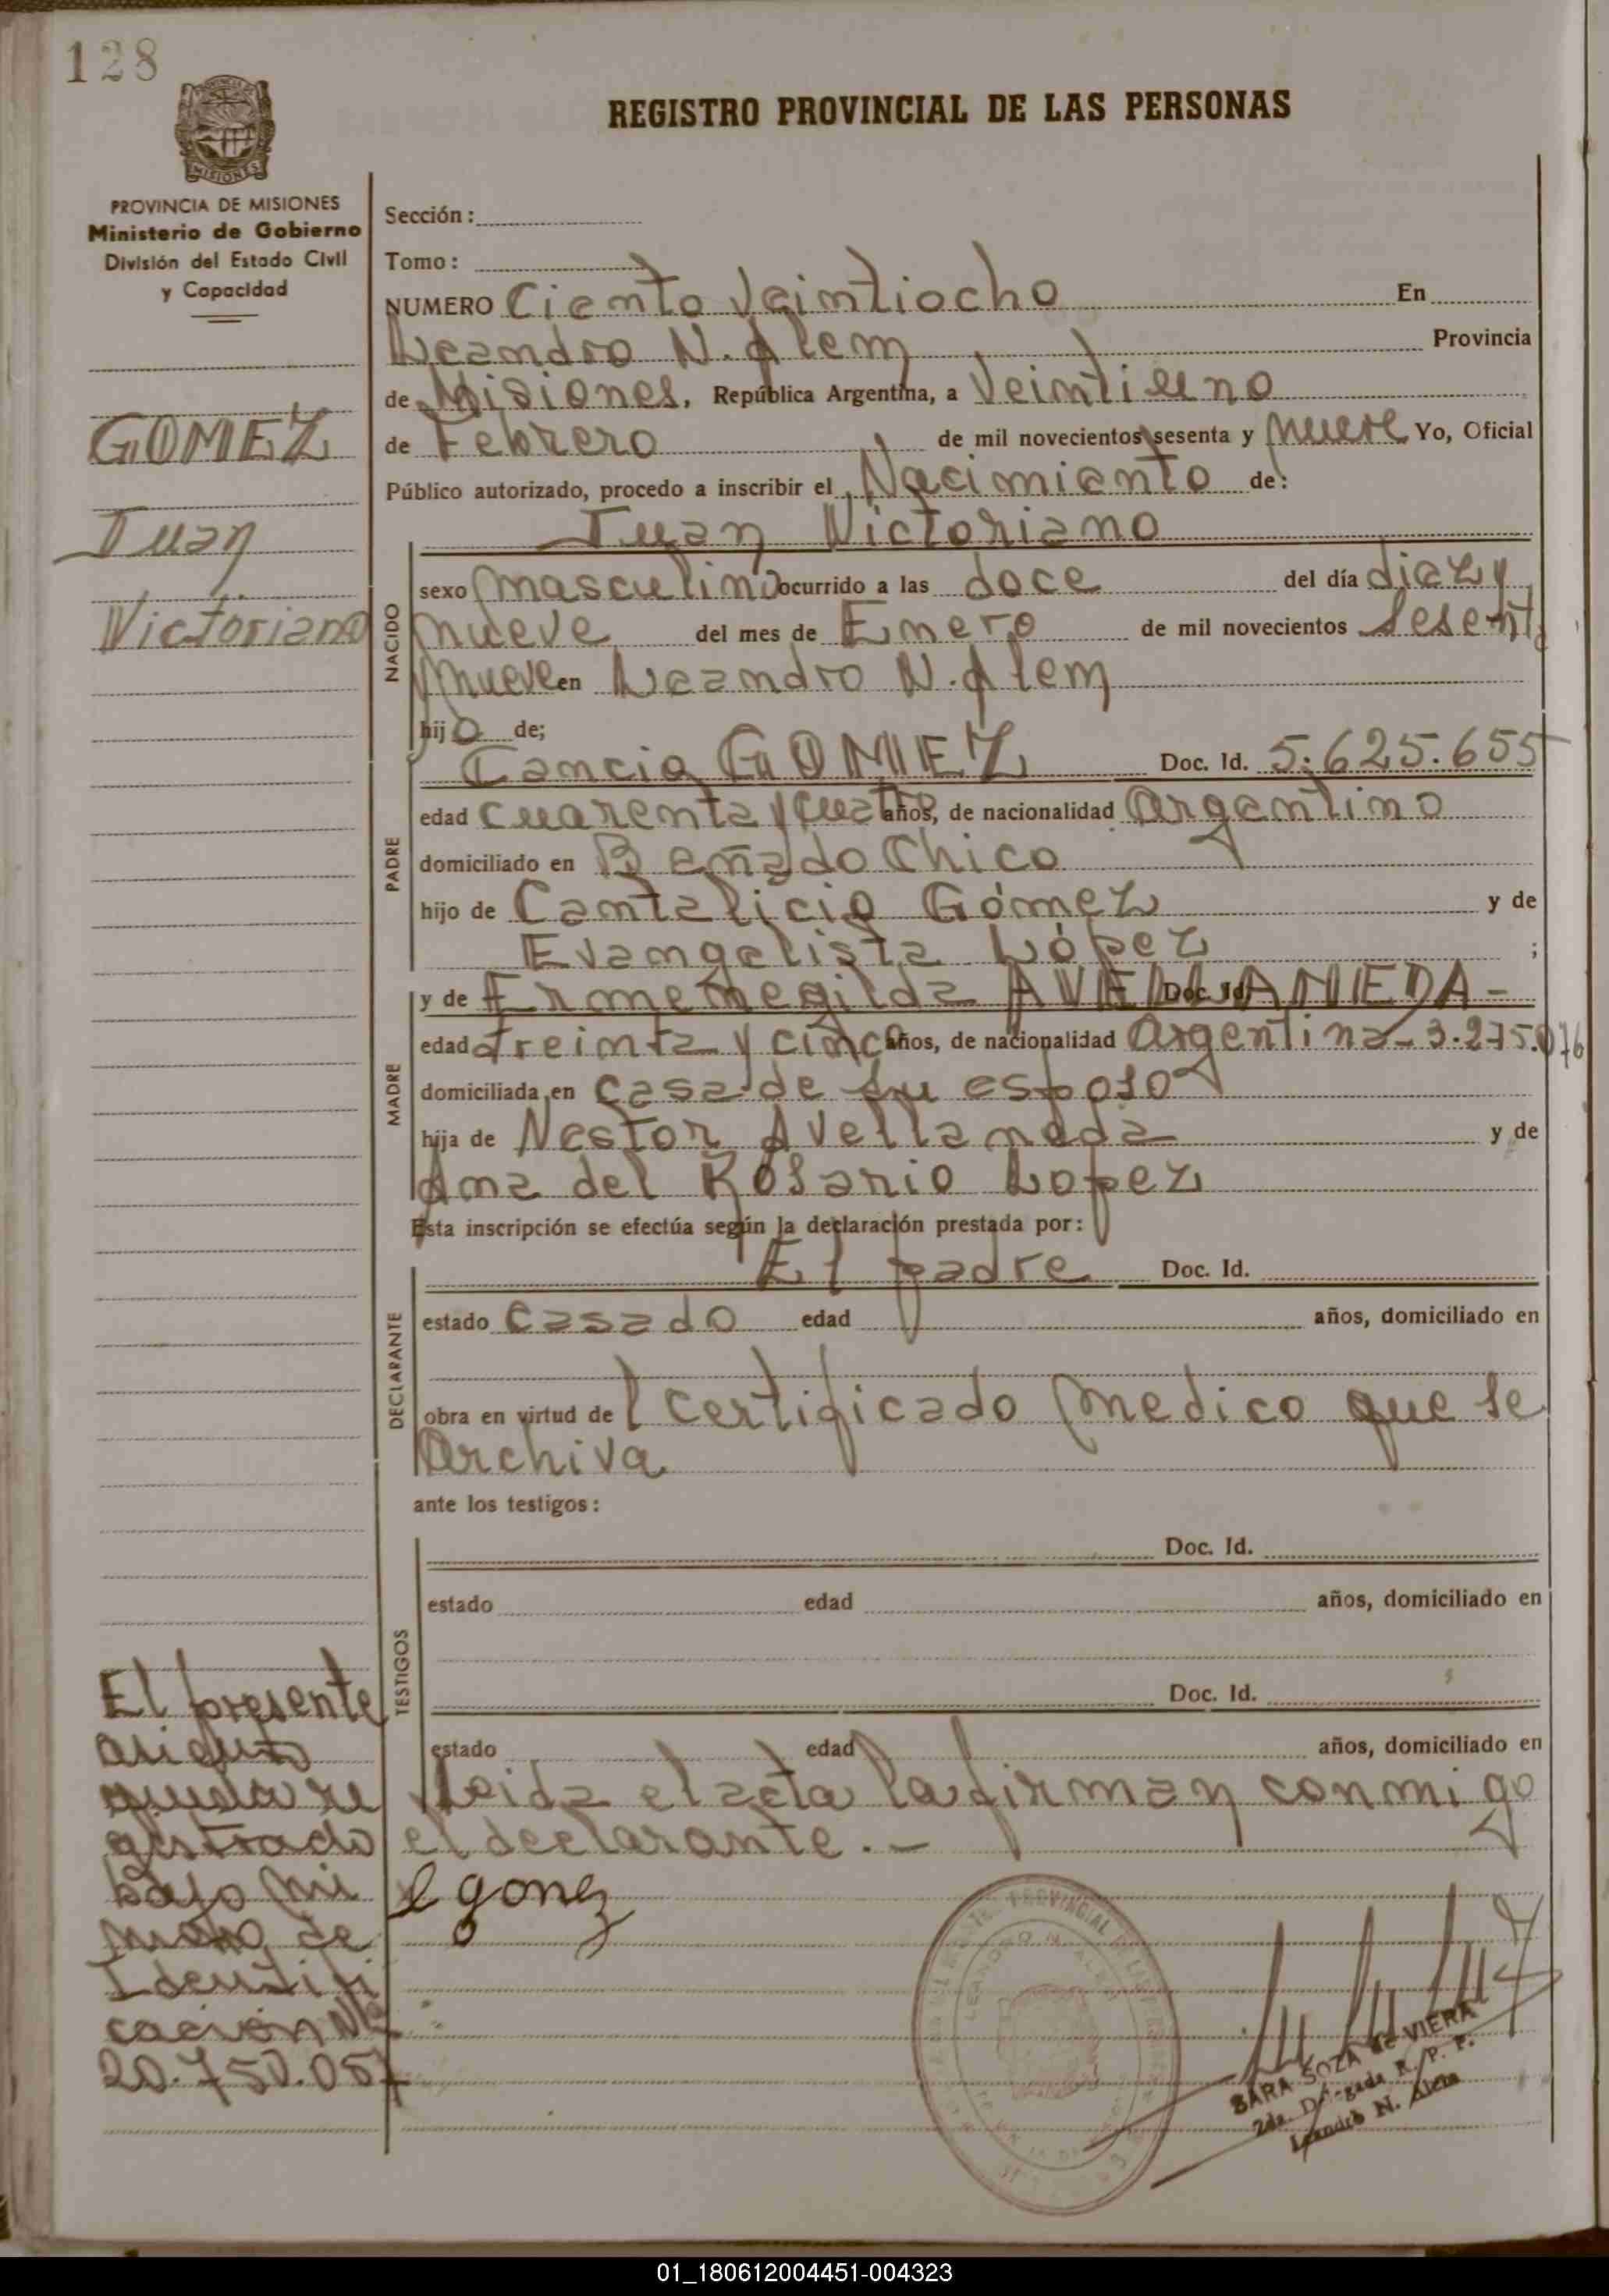 128
REGISTRO PROVINCIAL DE LAS PERSONAS
MISIONES
PROVINCIA DE MISIONES
Ministerio de Gobierno
División del Estado Civil
y Capacidad
GOMEZ
Juan
Victoriano
Sección:
Tomo:
NUMERO Ciento Veintiocho En
Leandro N. Alem Provincia
de Misiones, República Argentina, a Veintiuno
de Febrero de mil novecientos sesenta y nueve Yo, Oficial
Público autorizado, procedo a inscribir el Nacimiento de:
Juan Victoriano
NACIDO
sexo masculino ocurrido a las doce del día diez y
nueve del mes de Enero de mil novecientos sesenta
nueve en Leandro N. Alem
hijo de;
PADRE
Cancio GOMEZ Doc. Id. 5.625.655
edad cuarenta y cuatro años, de nacionalidad Argentino
domiciliado en Bañado Chico
hijo de Cantalicio Gómez y de
Evangelista López ;
MADRE
y de Ermemegilda AVELLANEDA - Doc. Id.
edad treinta y cinco años, de nacionalidad Argentina - 3.275.076
domiciliada en casa de su esposo
hija de Nestor Avellaneda y de
Ana del Rosario Lopez
Esta inscripción se efectúa según la declaración prestada por:
DECLARANTE
El padre Doc. Id.
estado casado edad años, domiciliado en
obra en virtud del certificado medico que se
Archiva
ante los testigos:
TESTIGOS
Doc. Id.
estado edad años, domiciliado en
Doc. Id.
estado edad años, domiciliado en
Leida el acta la firman conmigo
el declarante. -
gomez
El presente
queda re
gistrado
bajo nú
mero de
Identifi
cación Nº
20.750.057
PROVINCIAL
LEANDRO N. ALEM
SARA SOZA de VIERA
2da. Delegada R. P. P.
Leandro N. Alem
01_180612004451-004323